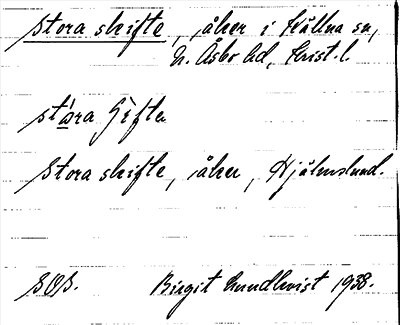 Stora skifte, åker i Källna sn,
N. Åsbo hd, Krist. l.
stára
Stora skifte, åker, Hjälmslund.
SOB. Birgit Lundkvist 1938.